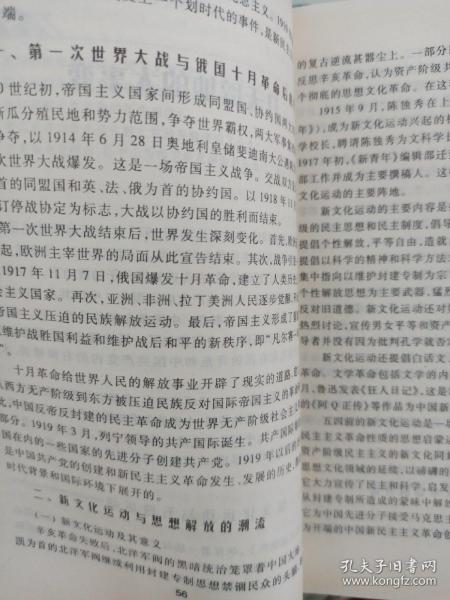 端。
个划时代的事件，是新民主
一、第一次世界大战与俄国十月革命后
0世纪初，帝国主义国家间形成同盟国、协约国两大
新瓜分殖民地和势力范围，争夺世界霸权，两大军事集
争夺，以1914年6月28日奥地利皇储斐迪南大公遇
次世界大战爆发。这是一场帝国主义战争。交战双
首的同盟国和英、法、俄为首的协约国。以1918年11
订停战协定为标志，大战以协约国的胜利而结束。
第一次世界大战结束后，世界发生深刻变化。首先，
起，欧洲主宰世界的局面从此宣告结束。其次，战争引
1917年11月7日，俄国爆发十月革命，建立了人类历
会主义国家。再次，亚洲、非洲、拉丁美洲人民逐步觉醒，
帝国主义压迫的民族解放运动。最后，帝国主义形成了
维护战胜国利益和维护战后和平的新秩序，即“凡尔赛一
”。
十月革命给世界人民的解放事业开辟了现实的道路，
从西方无产阶级到东方被压迫民族反对国际帝国主义的革
，中国反帝反封建的民主革命成为世界无产阶级社会主义
部分。1919年3月，列宁领导的共产国际诞生。共产国际
国在内的一些国家的先进分子创建共产党。1919年以后
是中国共产党的创建和新民主主义革命发生、发展的历史，
时代背景和国际环境下展开的。
二、新文化运动与思想解放的潮流
(一)新文化运动及其意义
辛亥革命失败后，北洋军阀的黑暗统治笼罩着中国大
凯为首的北洋军阀继续利用封建专制思想禁锢民众的头脑
56
的复古逆流甚嚣尘上。一部分
反思辛亥革命，认为资产阶级共
个彻底的思想文化革命。
1915年9月，陈独秀在上
年》)，成为新文化运动兴起的标
学校长，聘请陈独秀为文科学长
1917年初，《新青年》编辑部迁
部工作并成为主要撰稿人。
动的主要阵地。
新文化运动的主要内容是
的民主思想和民主制度，倡导
提倡个性解放，平等自由，造就
提倡以科学的精神和科学方法
集中指向以维护封建专制为宗
个性解放思想为主要武器，猛烈
反对旧道德。新文化运动还对
热烈讨论，宣传男女平等的
导者并没有因为批判孔学就否
新文化运动还提倡白话文，
的文学。文学革命包括文学的内
月，鲁迅发表《狂人日记》，这是
的《阿Q正传》等作品为中国新
五四前的新文化运动是一
主革命性质的思想启蒙运
产阶级民主主义的新文化同
思想文化领域的延续，以磅礴的
它大力宣传了民主和科学，启发
从封建专制所造成的蒙昧中解
它为中国先进分子接受马克思主
为开端的中国新民主主义革命创
孔夫子旧书网